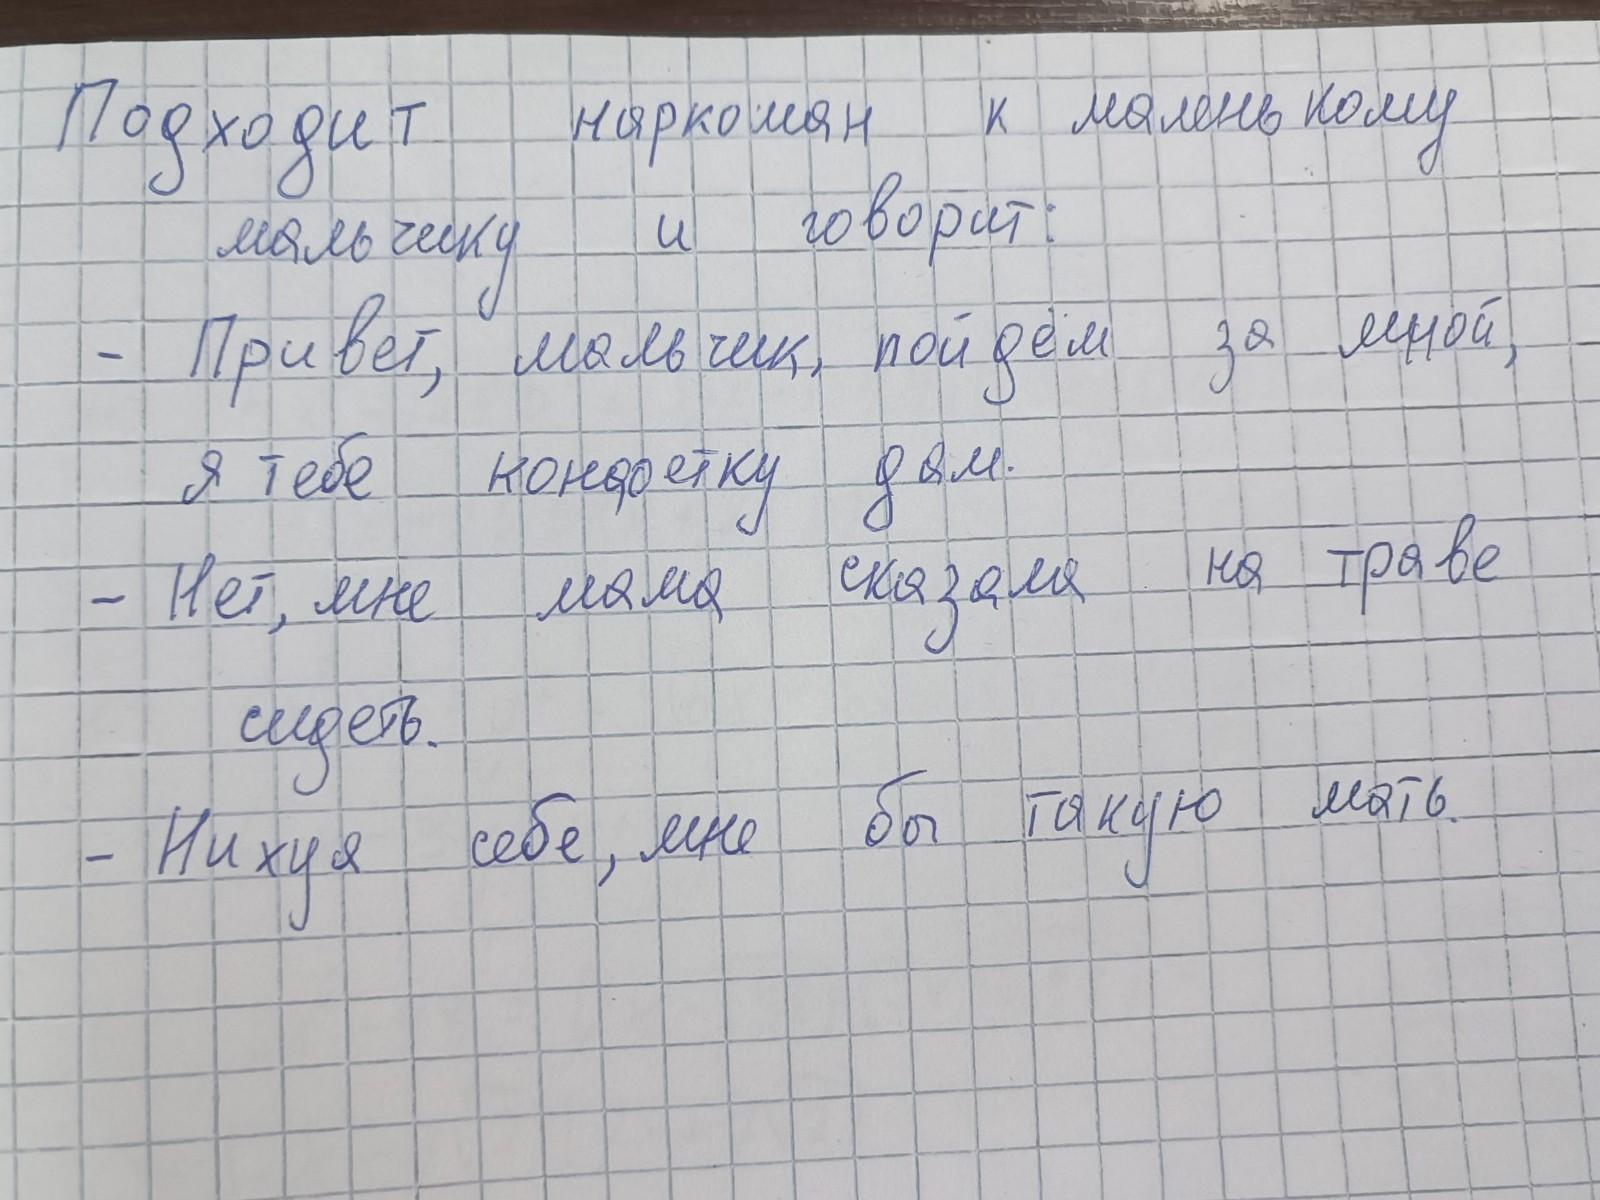 Подходит наркоман к маленькому
мальчику и говорит:
- Привет, мальчик, пойдём за мной,
я тебе конфетку дам.
- Нет, мне мама сказала на траве
сидеть.
- Нихуя себе, мне бы такую мать.